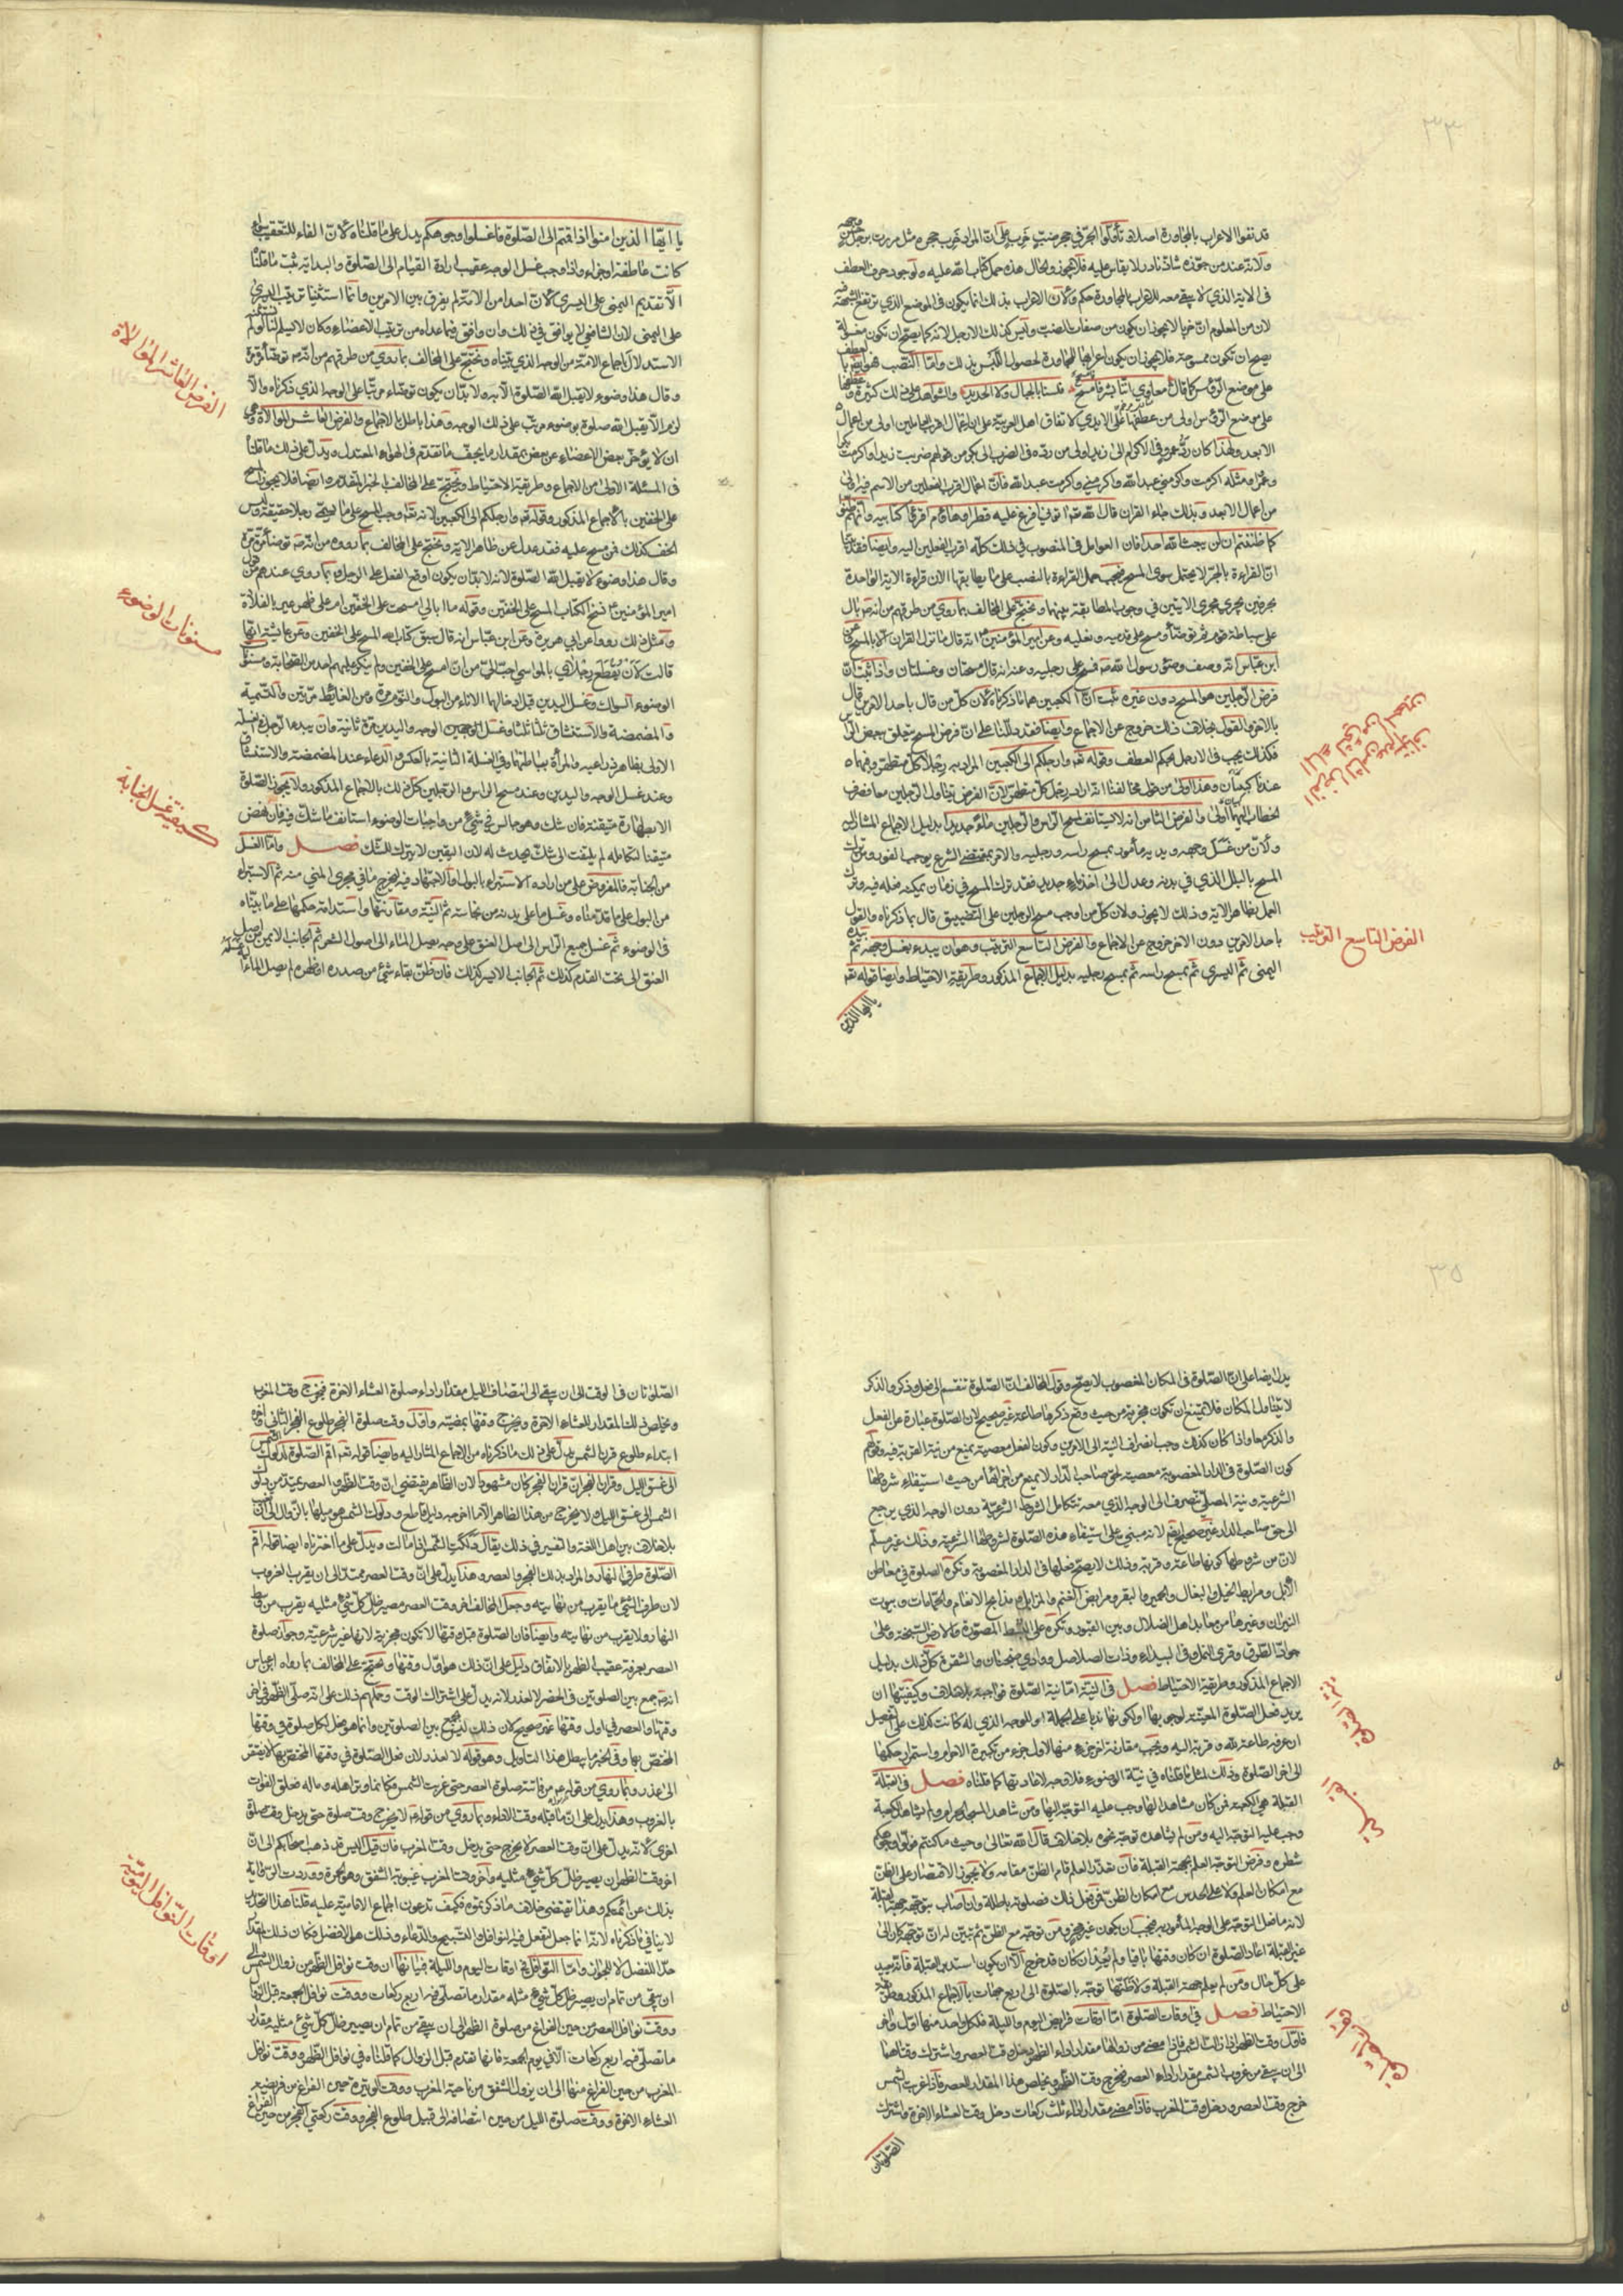 ٣٣
قد نفوا الاعراب بالمجاورة اصلا وتأولوا الجر في جحر ضب خرب على ان المراد خرب جحره مثل مررت برجل حسن وجهه
ولانه عند من جوزه شاذ نادر لا يقاس عليه فلا يجوز والحال هذه حمل كتاب الله عليه ولوجود حرف العطف
في الاية الذي لا يبقى معه للاعراب بالمجاورة حكم ولان الاعراب بذلك انما يكون في الموضع الذي ترتفع الشبهة فيه
لان من المعلوم ان خربا لا يجوز ان يكون من صفات الضب وليس كذلك الارجل لانه كما يصح ان تكون مغسولة
يصح ان تكون ممسوحة فلا يجوز ان يكون اعرابها للمجاورة لحصول اللبس بذلك واما النصب فهو ايضا بالعطف
على موضع الرؤس كما قال معاوي اننا بشر فاسجح فلسنا بالجبال ولا الحديدا والشواهد على ذلك كثيرة وعطفها
على موضع الرؤس اولى من عطفها على الايدي لاتفاق اهل العربية على ان اعمال اقرب العاملين اولى من اعمال
الابعد ولهذا كان رد عمرو في الاكرام الى زيد اولى من رده في الضرب الى بكر من قولهم ضربت زيدا واكرمت بكرا
وعمرا ومثله اكرمت واكرمني عبد الله واكرمني واكرمت عبد الله فان اعمال اقرب الفعلين من الاسم فيه اولى
من اعمال الابعد وبذلك جاء القران قال الله تعه اتوني افرغ عليه قطرا وهاؤم اقرؤا كتابيه وانهم ظنوا
كما ظننتم ان لن يبعث الله احدا فان العوامل في المنصوب في ذلك كله اقرب الفعلين اليه وايضا فقد بينا
ان القراءة بالجر لا يحتمل سوى المسح فيجب حمل القراءة بالنصب على ما يطابقها لان قراءة الاية الواحدة
بحرفين يجري مجرى الايتين في وجوب المطابقة بينهما ونحتج على المخالف بما روي من طرقهم من انه ص بال
على سباطة قوم ثم توضأ ومسح على قدميه ونعليه وعن امير المؤمنين ع انه قال ما نزل القران الا بالمسح وعن
ابن عباس انه وصف وضوء رسول الله ص فمسح على رجليه وعنه انه قال مسحتان وغسلتان واذا ثبت ان
فرض الرجلين هو المسح دون غيره ثبت ان الكعبين هما ما ذكرناه لان كل من قال باحد الامرين قال
بالاخر والقول بخلاف ذلك خروج عن الاجماع وايضا فقد دللنا على ان فرض المسح يتعلق ببعض الراس
فكذلك يجب في الارجل بحكم العطف وقوله تعه وارجلكم الى الكعبين المراد به رجلا كل متطهر وفيهما
عندنا كعبان وهذا اولى من قول مخالفنا انه اراد رجل كل متطهر لان الفرض يتناول الرجلين معا فصرف
الخطاب اليهما اولى والفرض الثامن انه لا يستانف لمسح الراس والرجلين ماء جديدا بدليل الاجماع المشار اليه
ولان من غسل وجهه ويديه مأمور بمسح راسه ورجليه والامر بمقتضى الشرع يوجب الفور ومن ترك
المسح بالبلل الذي في يديه وعدل الى اخذ ماء جديد فقد ترك المسح في زمان يمكنه فعله فيه وترك
العمل بظاهر الاية وذلك لا يجوز ولان كل من اوجب مسح الرجلين على التضييق قال بما ذكرناه والقول
باحد الامرين دون الاخر خروج عن الاجماع والفرض التاسع الترتيب وهو ان يبدء بغسل وجهه ثم يده
اليمنى ثم اليسرى ثم بمسح راسه ثم بمسح رجليه بدليل الاجماع المذكور وطريقة الاحتياط وايضا قوله تعه
يا ايها الذين
الفرض التاسع الترتيب
يا ايها الذين امنوا اذا قمتم الى الصلوة فاغسلوا وجوهكم يدل على ما قلناه لان الفاء للتعقيب سواء
كانت عاطفة او جزاء واذا وجب غسل الوجه عقيب ارادة القيام الى الصلوة والبداية به ثبت ما قلنا
الا تقديم اليمنى على اليسرى لان احدا من الامة لم يفرق بين الامرين وانما استثنينا ترتيب اليسرى
على اليمنى لان الشافعي لا يوافق في ذلك وان وافق فيما عداه من ترتيب الاعضاء وكان لا يسلم لنا لو لم نستثن
الاستدلال باجماع الامة من الوجه الذي بيناه ونحتج على المخالف بما روي من طرقهم من انه ص توضأ مرة مرة
وقال هذا وضوء لا يقبل الله الصلوة الا به ولا بد ان يكون توضاء مرتبا على الوجه الذي ذكرناه والا
لزم الا يقبل الله صلوة بوضوء مرتب على ذلك الوجه وهذا باطل بالاجماع والفرض العاشر الموالاة وهي
ان لا يؤخر بعض الاعضاء عن بعض بمقدار ما يجف ما تقدم في الهواء المعتدل ويدل على ذلك ما قلنا
في المسئلة الاولى من الاجماع وطريقة الاحتياط ونحتج على المخالف بالخبر المتقدم وايضا فلا يجوز المسح
على الخفين بالاجماع المذكور وقوله تعه وارجلكم الى الكعبين لانه تعه اوجب المسح على ما يسمى رجلا حقيقة وليس
الخف كذلك فمن مسح عليه فقد عدل عن ظاهر الاية ونحتج على المخالف بما رووه من انه ص توضأ مرة مرة
وقال هذا وضوء لا يقبل الله الصلوة الا به لانه لا بد ان يكون اوقع الفعل على الرجل وبما روي عندهم من قول
امير المؤمنين ع نسخ الكتاب المسح على الخفين وقوله ما ابالي امسحت على الخفين ام على ظهر عير بالفلاة
ومثل ذلك رووه عن ابي هريرة وعن ابن عباس انه قال سبق كتاب الله المسح على الخفين وعن عائشة انها
قالت لان تقطع رجلاي بالمواسي احب الي من ان امسح على الخفين ولم ينكر عليهم احد من الصحابة ومسنون
الوضوء السواك وغسل اليدين قبل ادخالهما الاناء من البول والنوم مرة ومن الغائط مرتين والتسمية
والمضمضة والاستنشاق ثلثا ثلثا وغسل الوجه واليدين مرة ثانية وان يبدء الرجل في غسله
الاولى بظاهر ذراعيه والمرأة بباطنهما وفي الغسلة الثانية بالعكس والدعاء عند المضمضة والاستنشاق
وعند غسل الوجه واليدين وعند مسح الراس والرجلين كل ذلك بالاجماع المذكور ولا يجوز الصلوة
الا بطهارة متيقنة فان شك وهو جالس في شئ من واجبات الوضوء استانف ما شك فيه فان نهض
متيقنا لتكامله لم يلتفت الى شك يحدث له لان اليقين لا يترك للشك فصل واما الغسل
من الجنابة فالمفروض على من اراده الاستبراء بالبول او الاجتهاد فيه ليخرج ما في مجرى المني منه ثم الاستبراء
من البول على ما قدمناه وغسل ما على بدنه من نجاسة ثم النية ومقارنتها واستدامة حكمها على ما بيناه
في الوضوء ثم غسل جميع الراس الى اصل العنق على وجه يصل الماء الى اصول الشعر ثم الجانب الايمن من اصل
العنق الى تحت القدم كذلك ثم الجانب الايسر كذلك فان ظن بقاء شئ من صدره او ظهره لم يصل الماء اليه غسله
الفرض العاشر الموالاة
مسنونات الوضوء
كيفية غسل الجنابة
٣٥
يدل ايضا على ان الصلوة في المكان المغصوب لا يصح وقول المخالف ان الصلوة تنقسم الى فعل وذكر والذكر
لا يتناول المكان فلا يمتنع ان تكون مجزية من حيث وقع ذكرها طاعة غير صحيح لان الصلوة عبارة عن الفعل
والذكر معا واذا كان كذلك وجب انصراف النية الى الامرين وكون الفعل معصية يمنع من نية القربة فيه وقولهم
كون الصلوة في الدار المغصوبة معصية لحق صاحب الدار لا يمنع من اجزائها من حيث استيفاء شروطها
الشرعية ونية المصلي تنصرف الى الوجه الذي معه تتكامل الشروط الشرعية دون الوجه الذي يرجع
الى حق صاحب الدار غير صحيح ايضا لانه مبني على استيفاء هذه الصلوة لشروطها الشرعية وذلك غير مسلم
لان من شروطها كونها طاعة وقربة وذلك لا يصح فعلها في الدار المغصوبة وتكره الصلوة في معاطن
الابل ومرابط الخيل والبغال والحمير والبقر ومرابض الغنم والمزابل ومذابح الانعام والحمامات وبيوت
النيران وغيرها من معابد اهل الضلال وبين القبور وتكره على البسط المصورة والارض السبخة وعلى
جواد الطرق وقرى النمل وفي البيداء وذات الصلاصل ووادي ضجنان والشقرة كل ذلك بدليل
الاجماع المذكور وطريقة الاحتياط فصل في النية اما نية الصلوة فواجبة بلا خلاف وكيفيتها ان
يريد فعل الصلوة المعينة لوجوبها او لكونها ندبا على الجملة او للوجه الذي له كانت كذلك على التفصيل
ان عرفه طاعة لله وقربة اليه ويجب مقارنة اخر جزء منها لاول جزء من تكبيرة الاحرام واستمرار حكمها
الى اخر الصلوة وذلك لمثل ما قلناه في نية الوضوء فلا وجه لاعادتها كما قلناه فصل في القبلة
القبلة هي الكعبة فمن كان مشاهدا لها وجب عليه التوجه اليها ومن شاهد المسجد الحرام ولم يشاهد الكعبة
وجب عليه التوجه اليه ومن لم يشاهده توجه نحوه بلا خلاف قال الله تعالى وحيث ما كنتم فولوا وجوهكم
شطره وفرض التوجه العلم بجهة القبلة فان تعذر العلم قام الظن مقامه ولا يجوز الاقتصار على الظن
مع امكان العلم ولا على الحدس مع امكان الظن فمن فعل ذلك فصلوته باطلة وان اصاب بتوجهه جهة القبلة
لانه ما فعل التوجه على الوجه المأمور به فيجب ان يكون غير مجز ومن توجه مع الظن ثم تبين له ان توجهه كان الى
غير القبلة اعاد الصلوة ان كان وقتها باقيا ولم يعد ان كان قد خرج الا ان يكون استدبر القبلة فانه يعيد
على كل حال ومن لم يعلم جهة القبلة ولا ظنها توجه بالصلوة الى اربع جهات بالاجماع المذكور وطريقة
الاحتياط فصل في اوقات الصلوة اما اوقات فرائض اليوم والليلة فلكل واحد منها اول واخر
فاول وقت الظهر اذا زالت الشمس فاذا مضى من زوالها مقدار اداء الظهر دخل وقت العصر واشترك وقتاهما
الى ان يبقى من غروب الشمس مقدار اداء العصر فيخرج وقت الظهر ويخلص هذا المقدار للعصر فاذا غربت الشمس
خرج وقت العصر ودخل وقت المغرب فاذا مضى مقدار اداء ثلث ركعات دخل وقت العشاء الاخرة واشترك
الصلوتان
الصلوتان في الوقت الى ان يبقى الى انتصاف الليل مقدار اداء صلوة العشاء الاخرة فيخرج وقت المغرب
ويخلص ذلك المقدار للعشاء الاخرة ويخرج وقتها بمضيه واول وقت صلوة الفجر طلوع الفجر الثاني واخره
ابتداء طلوع قرن الشمس يدل على ذلك ما ذكرناه من الاجماع المشار اليه وايضا قوله تعه اقم الصلوة لدلوك الشمس
الى غسق الليل وقران الفجر ان قران الفجر كان مشهودا لان الظاهر يقتضي ان وقت الظهر والعصر يمتد من دلوك
الشمس الى غسق الليل ولا يخرج من هذا الظاهر الا ما اخرجه دليل قاطع ودلوك الشمس هو ميلها بالزوال الى ان تغيب
بلا خلاف بين اهل اللغة والتفسير في ذلك يقال دلكت الشمس اذا مالت ويدل على ما اخترناه ايضا قوله اقم
الصلوة طرفي النهار والمراد بذلك الفجر والعصر وهذا يدل على ان وقت العصر ممتد الى ان يقرب الغروب
لان طرف الشئ ما يقرب من نهايته وجعل المخالف اخر وقت العصر مصير ظل كل شئ مثليه يقرب من وسط
النهار ولا يقرب من نهايته وايضا فان الصلوة قبل وقتها لا تكون مجزية لانها غير شرعية وجواز صلوة
العصر بعرفة عقيب الظهر بالاتفاق دليل على ان ذلك هو اول وقتها ونحتج على المخالف بما رواه ابن عباس
انه ص جمع بين الصلوتين في الحضر لا لعذر لانه يدل على اشتراك الوقت وحملهم ذلك على انه صلى الظهر في اخر
وقتها والعصر في اول وقتها غير صحيح لان ذلك ليس جمع بين الصلوتين وانما هو فعل لكل صلوة في وقتها
المختص بها وفي الخبر ما يبطل هذا التاويل وهو قوله لا لعذر لان فعل الصلوة في وقتها المختص بها لا يفتقر
الى عذر وبما روي من قوله ع من فاتته صلوة العصر حتى غربت الشمس فكانما وتر اهله وماله فعلق الفوات
بالغروب وهذا يدل على ان ما قبله وقت الاداء وبما روي من قوله ع لا يخرج وقت صلوة حتى يدخل وقت صلوة
اخرى لانه يدل على ان وقت العصر لا يخرج حتى يدخل وقت المغرب فان قيل اليس قد ذهب اصحابكم الى ان
اخر وقت الظهر ان يصير ظل كل شئ مثليه واخر وقت المغرب غيبوبة الشفق وهو الحمرة ووردت الرواية
بذلك عن ائمتكم وهذا يقتضي خلاف ما ذكرتموه فكيف تدعون اجماع الامامية عليه قلنا هذا التحديد
لا ينافي ما ذكرناه لانه انما جعل لتفعل فيه النوافل والتسبيح والدعاء وذلك هو الافضل فكان ذلك
حدا للفضل لا للجواز واما النوافل في اوقات اليوم والليلة فبيانها ان وقت نوافل الظهر من زوال الشمس الى
ان يبقى من تمام ان يصير ظل كل شئ مثله مقدار ما تصلى فيه اربع ركعات ووقت نوافل الجمعة قبل الزوال
ووقت نوافل العصر من حين الفراغ من صلوة الظهر الى ان يبقى من تمام ان يصير ظل كل شئ مثليه مقدار
ما تصلى فيه اربع ركعات الا في يوم الجمعة فانها تقدم قبل الزوال كما قلناه في نوافل الظهر ووقت نوافل
المغرب من حين الفراغ منها الى ان يزول الشفق من ناحية المغرب ووقت الوتيرة حين الفراغ من فريضة
العشاء الاخرة ووقت صلوة الليل من حين انتصافه الى قبيل طلوع الفجر ووقت ركعتي الفجر من حين الفراغ
اوقات النوافل اليومية